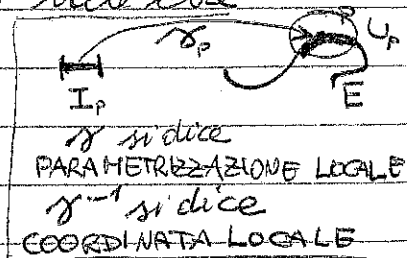 γp
p
Up
Ip
E
γ si dice
PARAMETRIZZAZIONE LOCALE
γ⁻¹ si dice
COORDINATA LOCALE